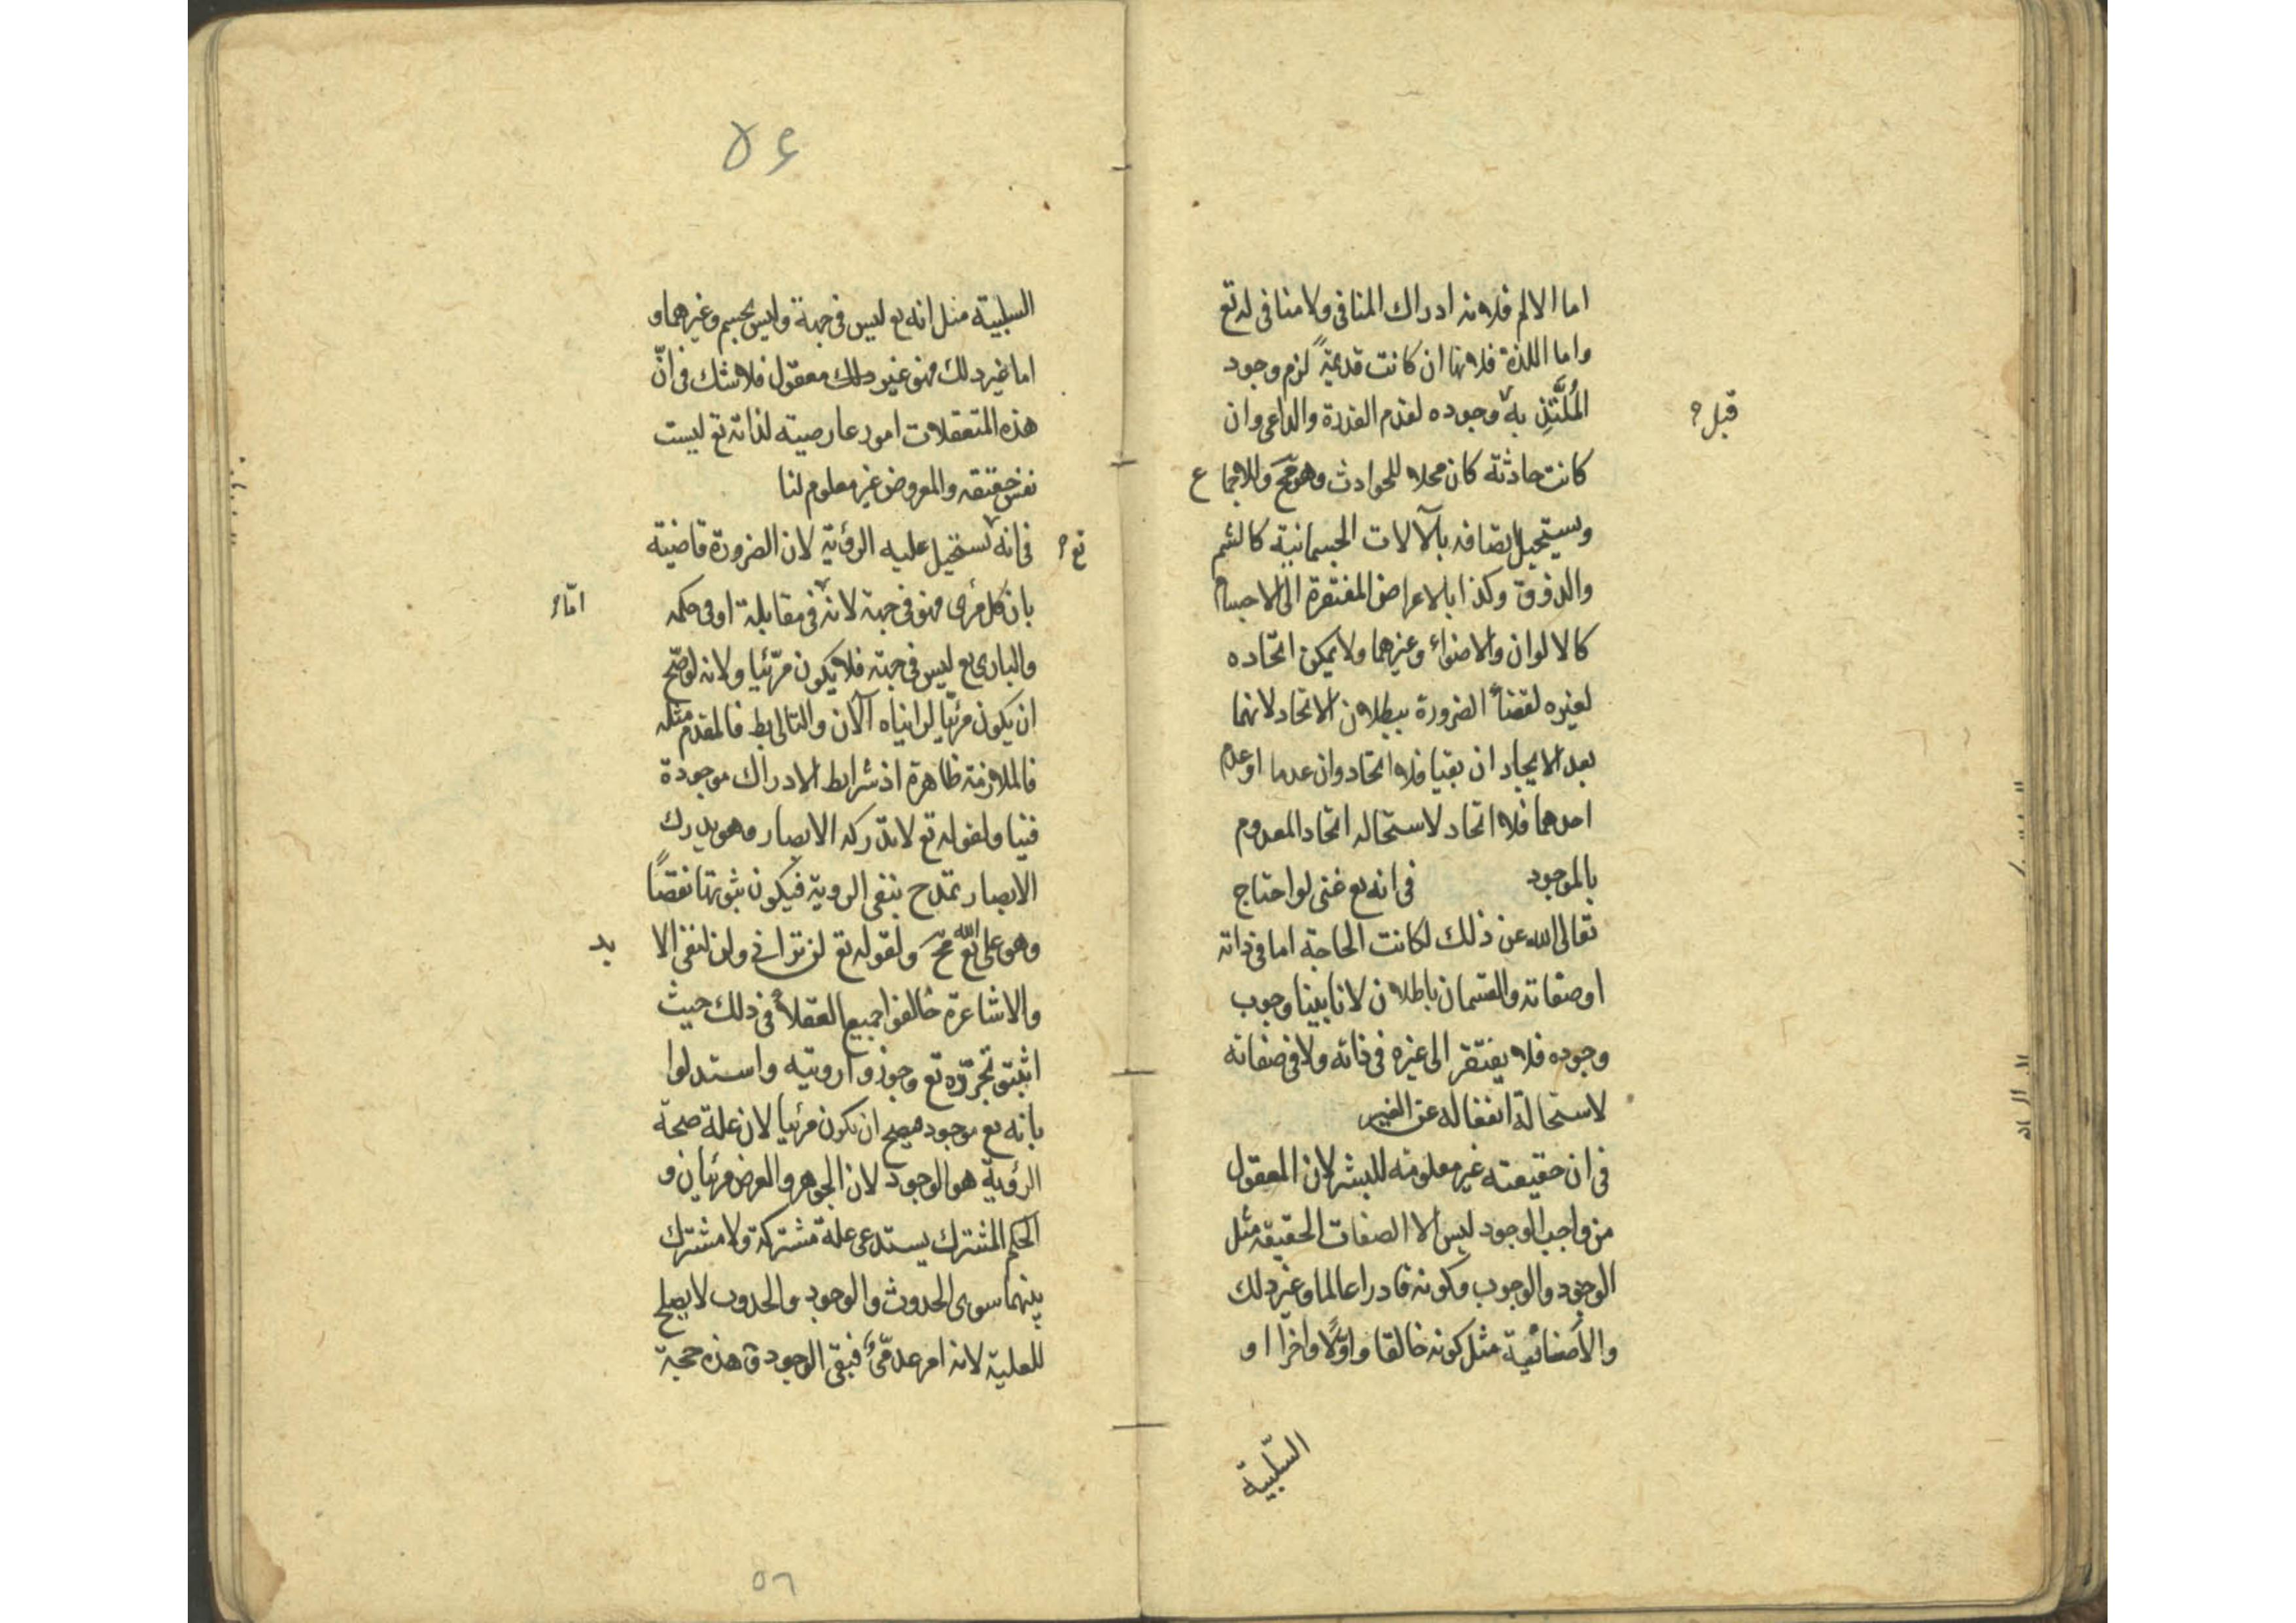 اما الالم فلانه ادراك المنافى ولا منافى له تع
واما اللذة فلانها ان كانت قديمةً لزم وجود
المُلتَّذِ به وجوده لقدم القدرة والداعى وان
قبل
كانت حادثة كان محلا للحوادث وهو مح وللاجماع
ويستحيل اتصافه بآلالات الجسمانية كالشم
والذوق وكذا بالاعراض المفتقرة الى الاجسام
كالالوان والاضواء وغيرهما ولا يمكن اتحاده
لغيره لقضاء الضرورة ببطلان الاتحاد لانهما
بعد الايجاد ان بقيا فلا اتحاد وان عدما او عدم
احدهما فلا اتحاد لاستحاله اتحاد المعدوم
بالموجود فى انه تع غنى لو احتاج
تعالى الله عن ذلك لكانت الحاجة اما فى ذاته
او صفاته والقسمان باطلان لانا بينا وجوب
وجوده فلا يفتقر الى غيره فى ذاته ولا فى صفاته
لاستحالة انفعاله عن الغير
فى ان حقيقته غير معلومه للبشر لان المعقول
من واجب الوجود ليس الا الصفات الحقيقه مثل
الوجود والوجوب وكونه قادرا عالما وغير دلك
والأضافية مثل كونه خالقا واوّلًا واخرًا او
السّلبية
٥۶
السلبية مثل انه تع ليس فى جهة وليس بجسم وغيرهما و
اما غير دلك فهو غير دلك معقول فلا شك فى انّ
هذه المتعقلات امور عارضيته لذاته تع ليست
نفس حقيقته والمعروض غير معلوم لنا
فى انه تستحيل عليه الرؤية لان الضرورة قاضية
تع
بان كل مرئى فهو فى جهة لانه فى مقابلة او فى حكمه
امّا
والبارى تع ليس فى جهة فلا يكون مرّئيا ولانه لو صّح
ان يكون مرئيّا لرايناه آلآن والتالى بط فالمقدم مثله
فالملازمة ظاهرة اذ شرايط الادراك موجودة
فينا ولقوله تع لا تدركه الابصار وهو يدرك
الابصار تمدح بنفى الروية فيكون ثبوتها نقصًا
وهو على الله تع مح ولقوله تع لن ترانى ولن لنفى الا
بد
والاشاعرة خالفوا جميع العقلاء فى ذلك حيث
اثبتو تجرّده تع وجوزوا رويته واستدلوا
بانه تع موجود فيصح ان يكون مرئيا لان علة صحة
الرؤية هو الوجود لان الجوهر والعرض مرئيان و
الحكم المشترك يستدعى علة مشتركة ولا مشترك
بينهما سوى الحدوث والوجود والحدوب لا يصلح
للعلية لانه امر عدمّى فبقى الوجود و هذه حجة
٥٦